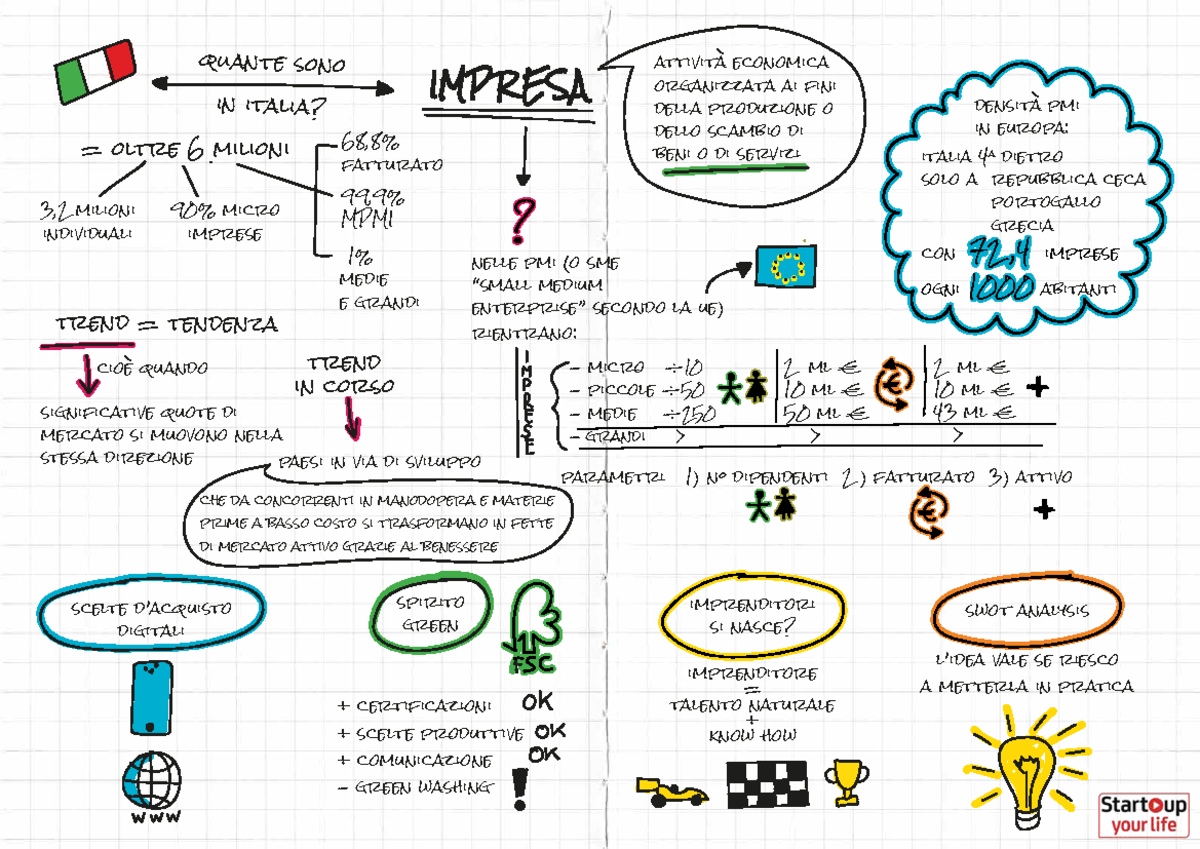 QUANTE SONO
IN ITALIA?
IMPRESA
ATTIVITÀ ECONOMICA
ORGANIZZATA AI FINI
DELLA PRODUZIONE O
DELLO SCAMBIO DI
BENI O DI SERVIZI
DENSITÀ PMI
IN EUROPA:
ITALIA 4ª DIETRO
SOLO A REPUBBLICA CECA
PORTOGALLO
GRECIA
CON 72,4 IMPRESE
OGNI 1000 ABITANTI
= OLTRE 6 MILIONI
3,2 MILIONI
INDIVIDUALI
90% MICRO
IMPRESE
68,8%
FATTURATO
99,9%
MPMI
1%
MEDIE
E GRANDI
?
NELLE PMI (O SME
"SMALL MEDIUM
ENTERPRISE" SECONDO LA UE)
RIENTRANO:
IMPRESE
- MICRO ÷10 2 ML € € 2 ML € +
- PICCOLE ÷50 10 ML € 10 ML €
- MEDIE ÷250 50 ML € 43 ML €
- GRANDI > > >
PARAMETRI 1) Nº DIPENDENTI 2) FATTURATO 3) ATTIVO
€ +
TREND = TENDENZA
CIOÈ QUANDO
SIGNIFICATIVE QUOTE DI
MERCATO SI MUOVONO NELLA
STESSA DIREZIONE
TREND
IN CORSO
PAESI IN VIA DI SVILUPPO
CHE DA CONCORRENTI IN MANODOPERA E MATERIE
PRIME A BASSO COSTO SI TRASFORMANO IN FETTE
DI MERCATO ATTIVO GRAZIE AL BENESSERE
SCELTE D'ACQUISTO
DIGITALI
WWW
SPIRITO
GREEN
FSC
+ CERTIFICAZIONI OK
+ SCELTE PRODUTTIVE OK
+ COMUNICAZIONE OK
- GREEN WASHING !
IMPRENDITORI
SI NASCE?
IMPRENDITORE
=
TALENTO NATURALE
+
KNOW HOW
SWOT ANALYSIS
L'IDEA VALE SE RIESCO
A METTERLA IN PRATICA
Startup
your life